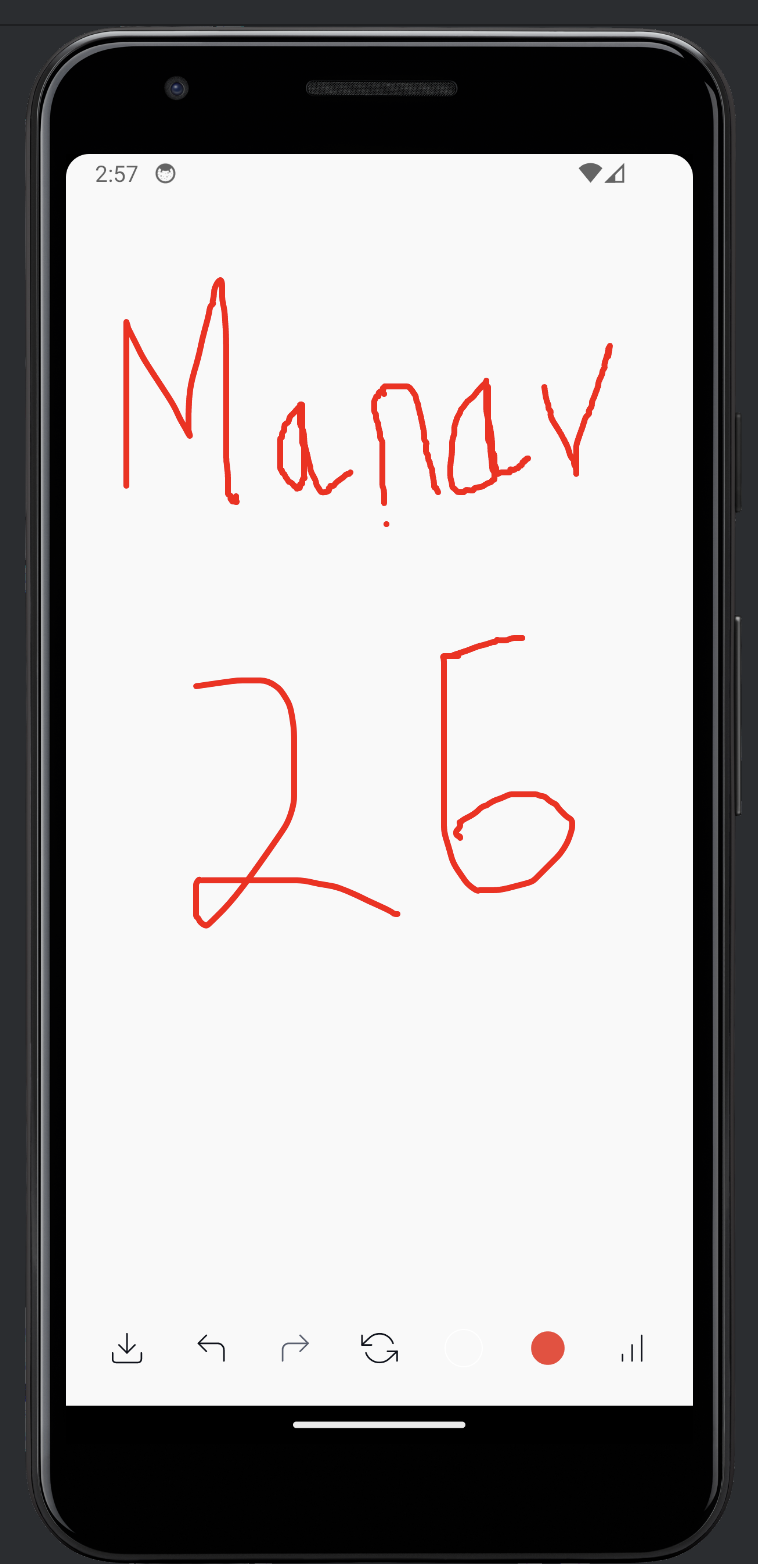 2:57
Manav
26